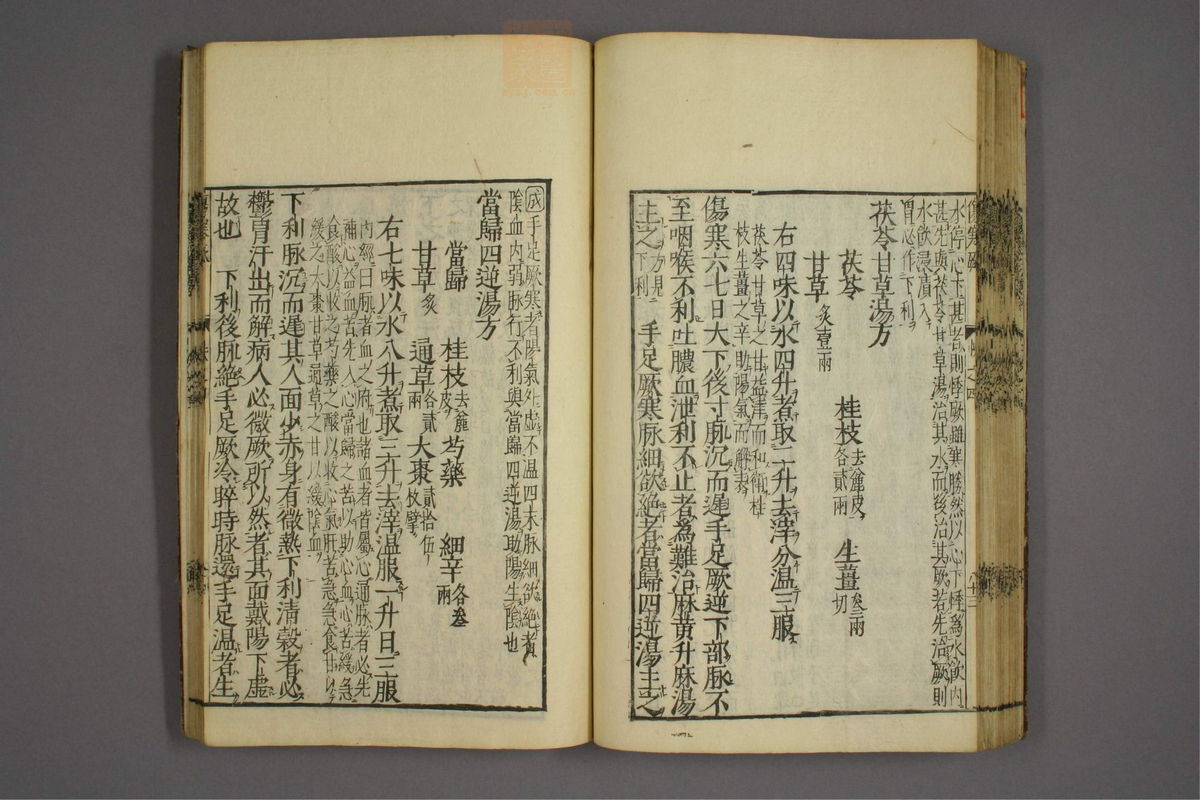 水停心下甚者則悸厥雖寒勝然以心下悸為水飲內
甚先與茯苓甘草湯治其水而後治其厥若先治厥則
水飲浸漬入
胃必作下利
茯苓甘草湯方
茯苓 桂枝去麄皮各貳兩 生薑叁兩切
甘草炙壹兩
右四味以水四升煮取二升去滓分溫三服
茯苓甘草之甘益津而和衛桂
枝生薑之辛助陽氣而解表
傷寒六七日大下後寸脉沉而遲手足厥逆下部脉不
至咽喉不利吐膿血泄利不止者為難治麻黃升麻湯
主之方見下利 手足厥寒脉細欲絕者當歸四逆湯主之
成手足厥寒者陽氣外虛不溫四末脉細欲絕者
陰血內弱脉行不利與當歸四逆湯助陽生陰也
當歸四逆湯方
當歸 桂枝去麄皮 芍藥 細辛各叁兩
甘草炙 通草各貳兩 大棗貳拾伍枚擘
右七味以水八升煮取三升去滓溫服一升日三服
內經曰脉者血之府也諸血者皆屬心通脉者必先
補心益血苦先入心當歸之苦以助心血心苦緩急
食酸以收之芍藥之酸以收心氣肝苦急急食甘以
緩之大棗甘草通草之甘以緩陰血
下利脉沉而遲其人面少赤身有微熱下利清穀者必
鬱冒汗出而解病人必微厥所以然者其面戴陽下虛
故也 下利後脉絕手足厥冷晬時脉還手足溫者生